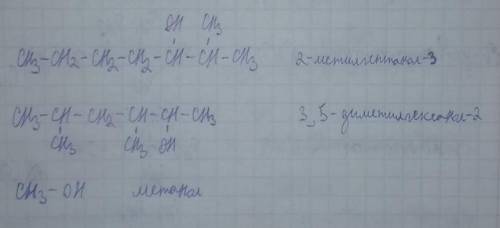 OH CH3
CH3-CH2-CH2-CH2-CH-CH-CH3 2-метилгептанол-3
CH3-CH-CH2-CH-CH-CH3 3,5-диметилгексанол-2
CH3 CH3 OH
CH3-OH метанол